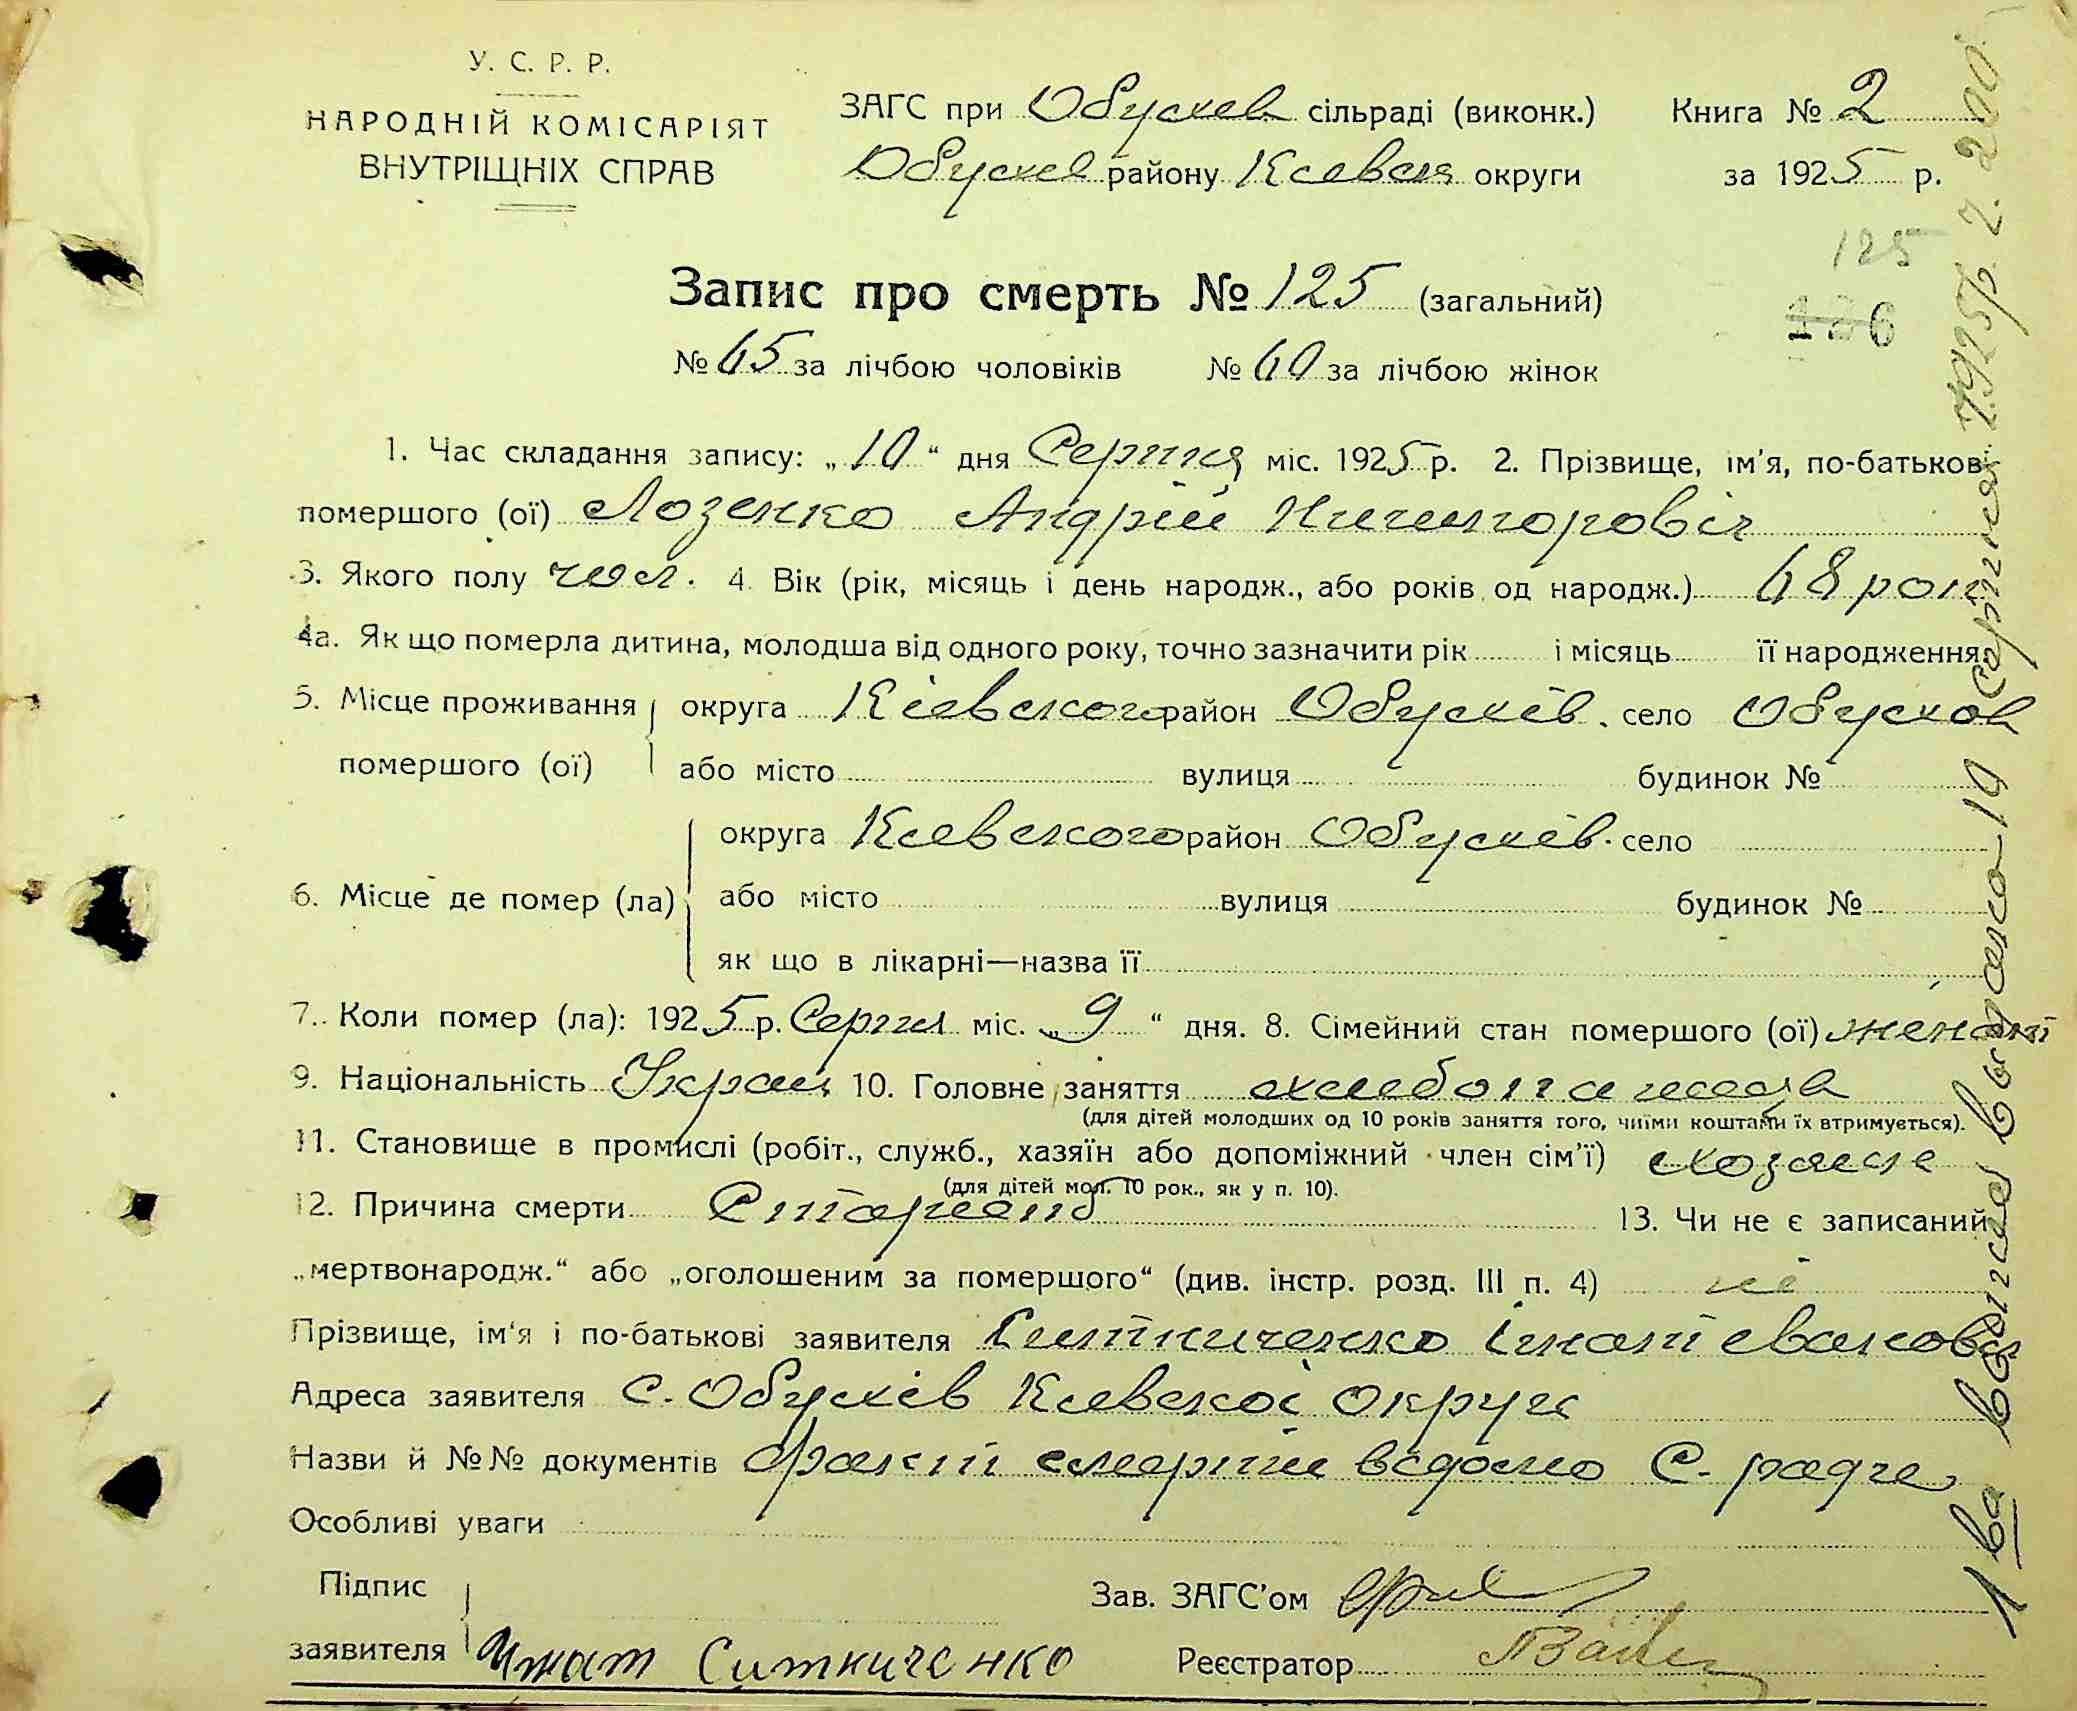 У. С. Р. Р.
НАРОДНІЙ КОМІСАРІЯТ
ВНУТРІЩНІХ СПРАВ
ЗАГС при Обухов сільраді (виконк.) Книга № 2
Обухов району Київськ округи за 1925 р.
125
126
Запис про смерть № 125 (загальний)
№ 65 за лічбою чоловіків № 60 за лічбою жінок
1. Час складання запису: „10“ дня Серпня міс. 1925 р. 2. Прізвище, ім'я, по-батькові
помершого (ої) Лозенко Андрій Ничипоровіч
3. Якого полу чол. 4. Вік (рік, місяць і день народж., або років од народж.) 68 рок
4а. Як що померла дитина, молодша від одного року, точно зазначити рік і місяць її народження
5. Місце проживання округа Кіевского район Обухів. село Обухов
помершого (ої) або місто вулиця будинок №
округа Киевского район Обухів. село
6. Місце де помер (ла) або місто вулиця будинок №
як що в лікарні—назва її
7. Коли помер (ла): 1925 р. Серпня міс. „9“ дня. 8. Сімейний стан помершого (ої)
9. Національність Украін 10. Головне заняття
(для дітей молодших од 10 років заняття того, чиїми коштами їх втримується).
11. Становище в промислі (робіт., служб., хазяїн або допоміжний член сім'ї)
(для дітей мол. 10 рок., як у п. 10).
12. Причина смерти Старість 13. Чи не є записаний
„мертвонародж.“ або „оголошеним за помершого“ (див. інстр. розд. III п. 4) ні
Прізвище, ім'я і по-батькові заявителя Ситниченко
Адреса заявителя С. Обухів Киевскоі округи
Назви й №№ документів смерти відомо С. раде
Особливі уваги
Підпис
заявителя Игнат Ситниченко
Зав. ЗАГС'ом
Реєстратор
видано 10 серпня 1925 р.